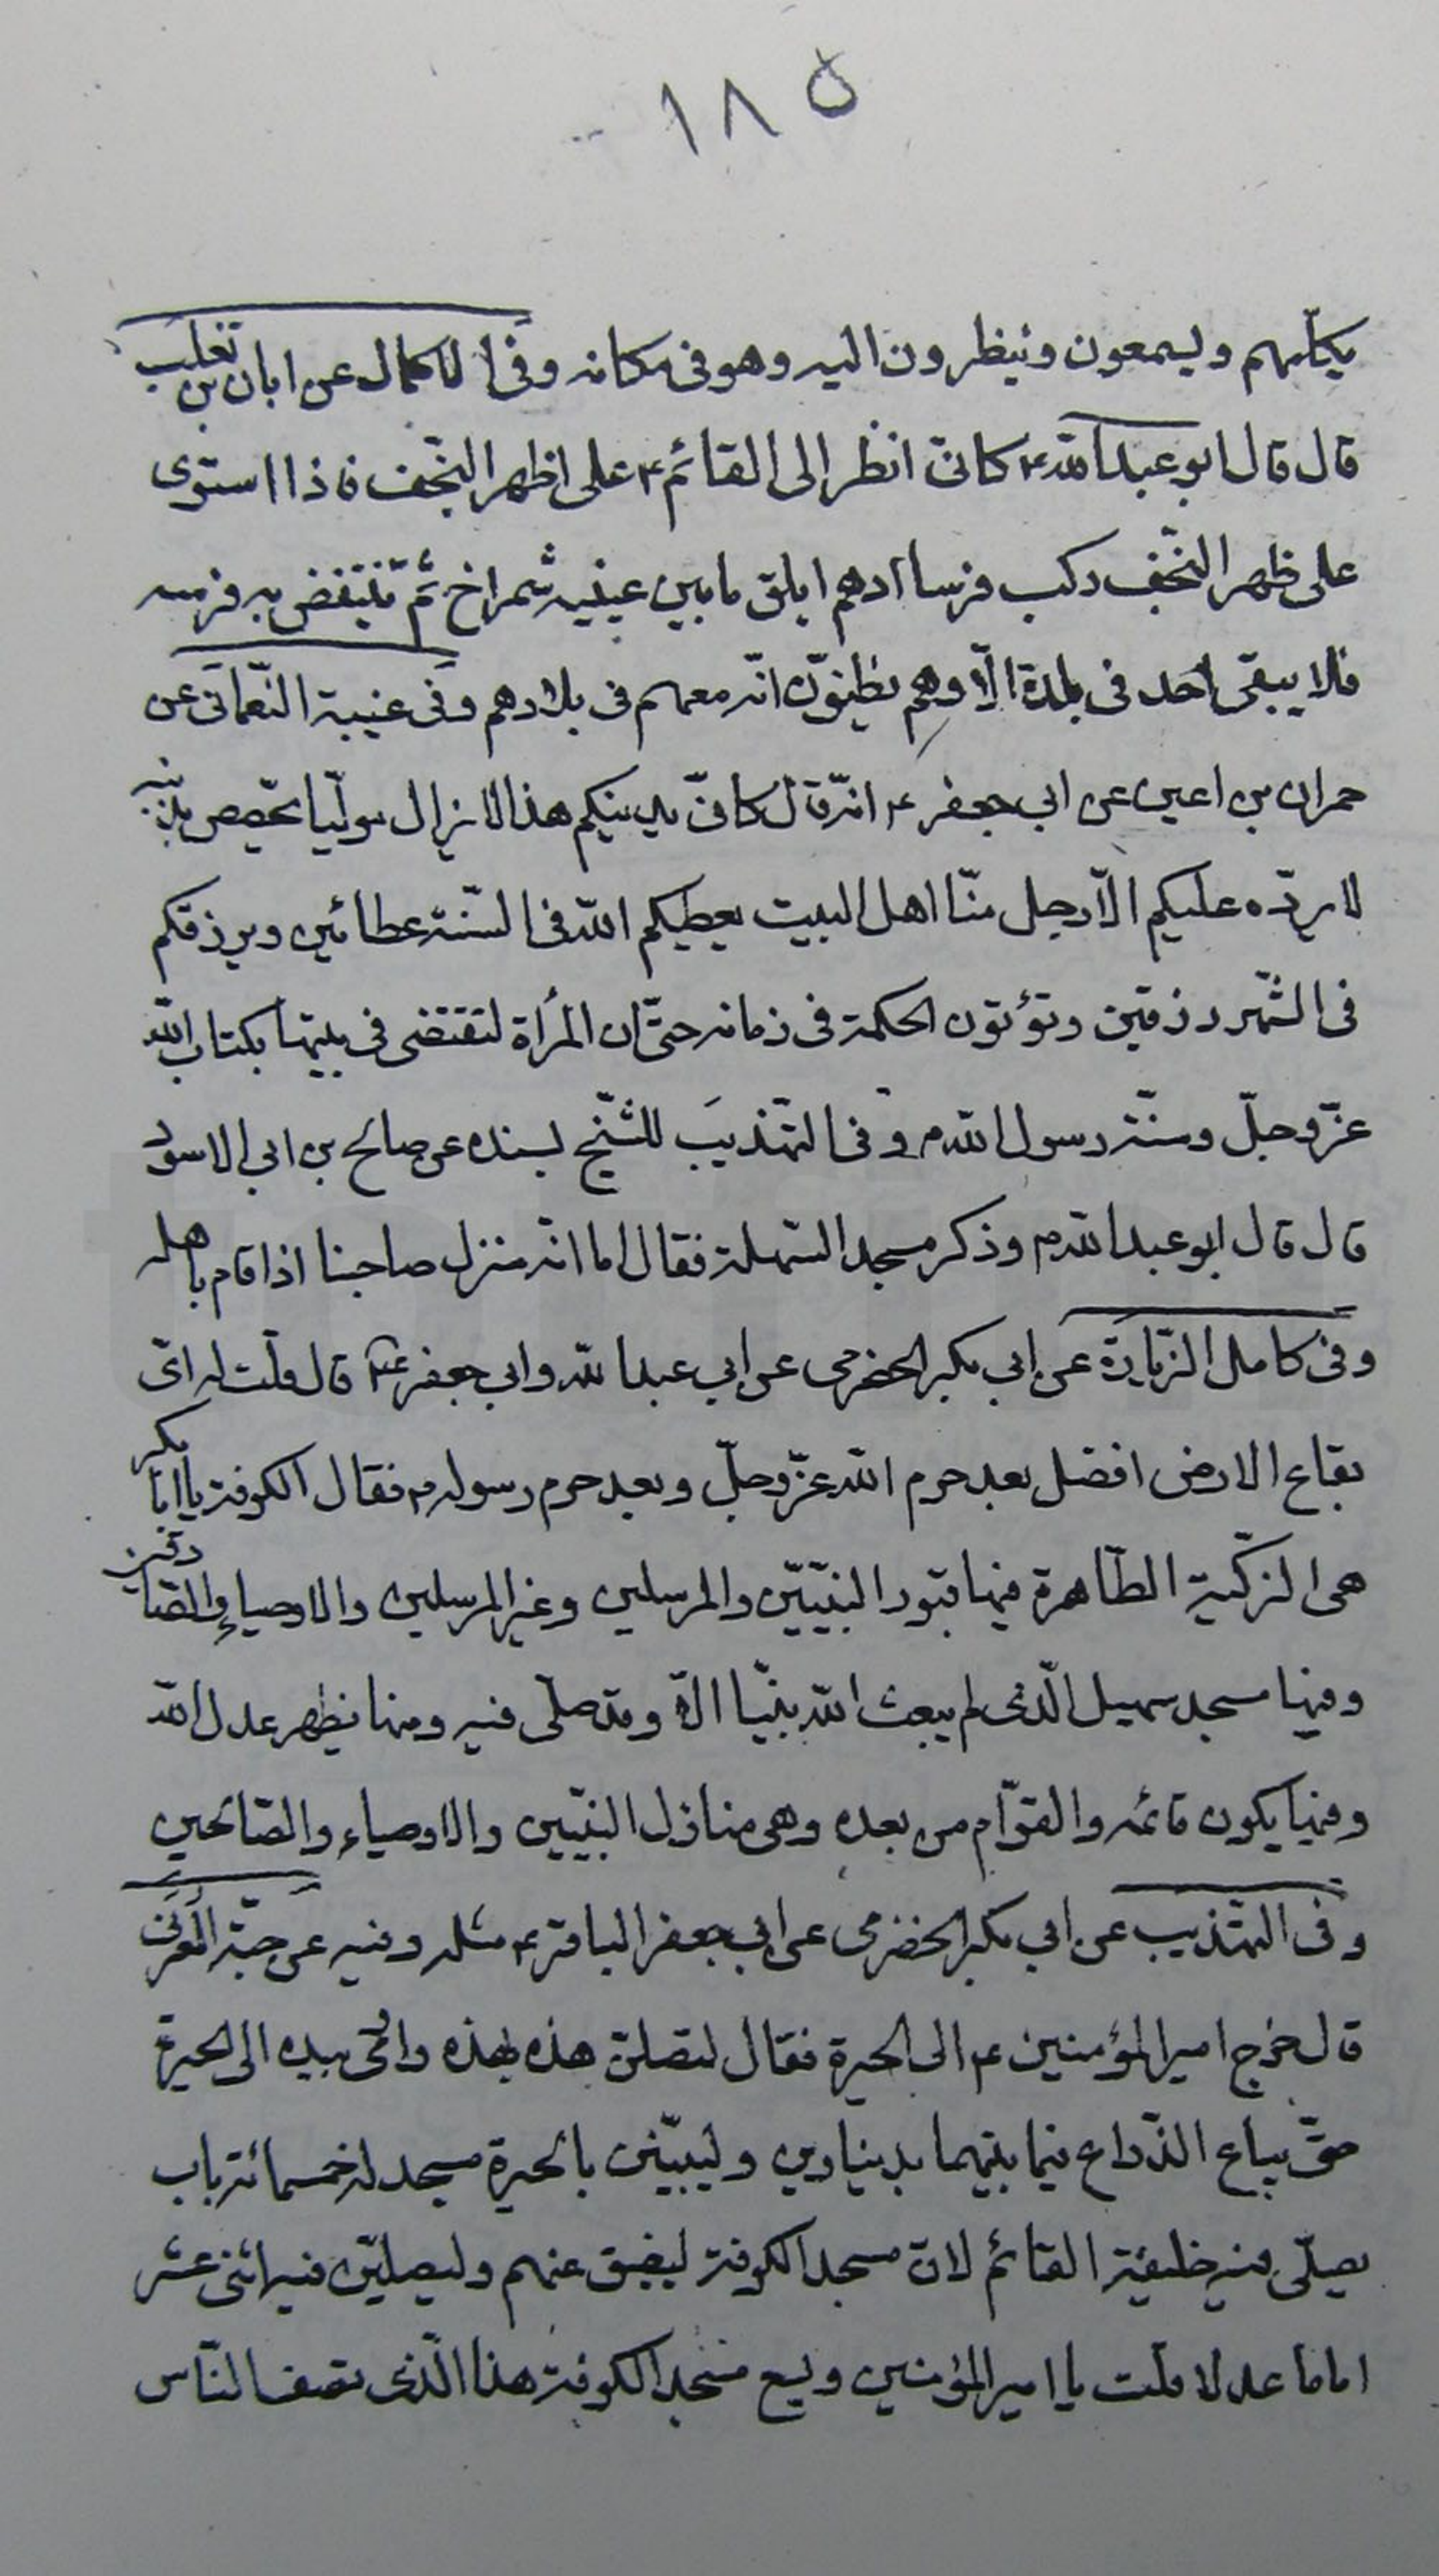 ١٨٥
يكلّمهم ويسمعون وينظرون اليه وهو فى مكانه وفى الاكمال عن ابان بن تغلب
قال قال ابو عبد الله ع كانّى انظر الى القائم ع على ظهر النّجف فاذا استوى
على ظهر النّجف ركب فرسا ادهم ابلق ما بين عينيه شمراخ ثمّ ينتفض به فرسه
فلا يبقى احد فى بلدة الّا وهم يظنّون انّه معهم فى بلادهم وفى غيبة النّعمانى عن
حمران بن اعين عن ابى جعفر ع انّه قال كانّى بدينكم هذا لا يزال مولّيا يفحص بدنبه
لا يردّه عليكم الّا رجل منّا اهل البيت يعطيكم الله فى السّنة عطائين ويرزقكم
فى الشّهر رزقين وتؤتون الحكمة فى زمانه حتّى ان المرأة لتقتضى فى بيتها بكتاب الله
عزّ وجلّ وسنّة رسول الله ص وفى التهذيب للشّيخ بسنده عن صالح بن ابى الاسود
قال قال ابو عبد الله ع وذكر مسجد السّهلة فقال اما انّه منزل صاحبنا اذا قام باهله
وفى كامل الزّيارة عن ابى بكر الحضرمى عن ابى عبد الله وابى جعفر ع قال قلت له اىّ
بقاع الارض افضل بعد حرم الله عزّ وجلّ وبعد حرم رسوله ص فقال الكوفة يا ابا بكر
هى الزكّية الطّاهرة فيها قبور النبيّين والمرسلين وغير المرسلين والاوصياء والصّادقين
وفيها مسجد سهيل الّذى لم يبعث الله نبيّا الّا وقد صلّى فيه ومنها يظهر عدل الله
وفيها يكون قائمه والقوّام من بعده وهى منازل النبيّين والاوصياء والصّالحين
وفى التهذيب عن ابى بكر الحضرمى عن ابى جعفر الباقر ع مثله وفيه عن حبّة العرنى
قال خرج امير المؤمنين ع الى الحيرة فقال لتصلنّ هذه بهذه واومى بيده الى الحيرة
حتّى يباع الذّراع فيما بينهما بدينارين وليبنينّ بالحيرة مسجد له خمسمائة باب
يصلّى فيه خليفة القائم لانّ مسجد الكوفة ليضيق عنهم وليصلّينّ فيه اثنى عشر
اماما عدلا قلت يا امير المؤمنين ويسع مسجد الكوفة هذا الّذى تصف النّاس